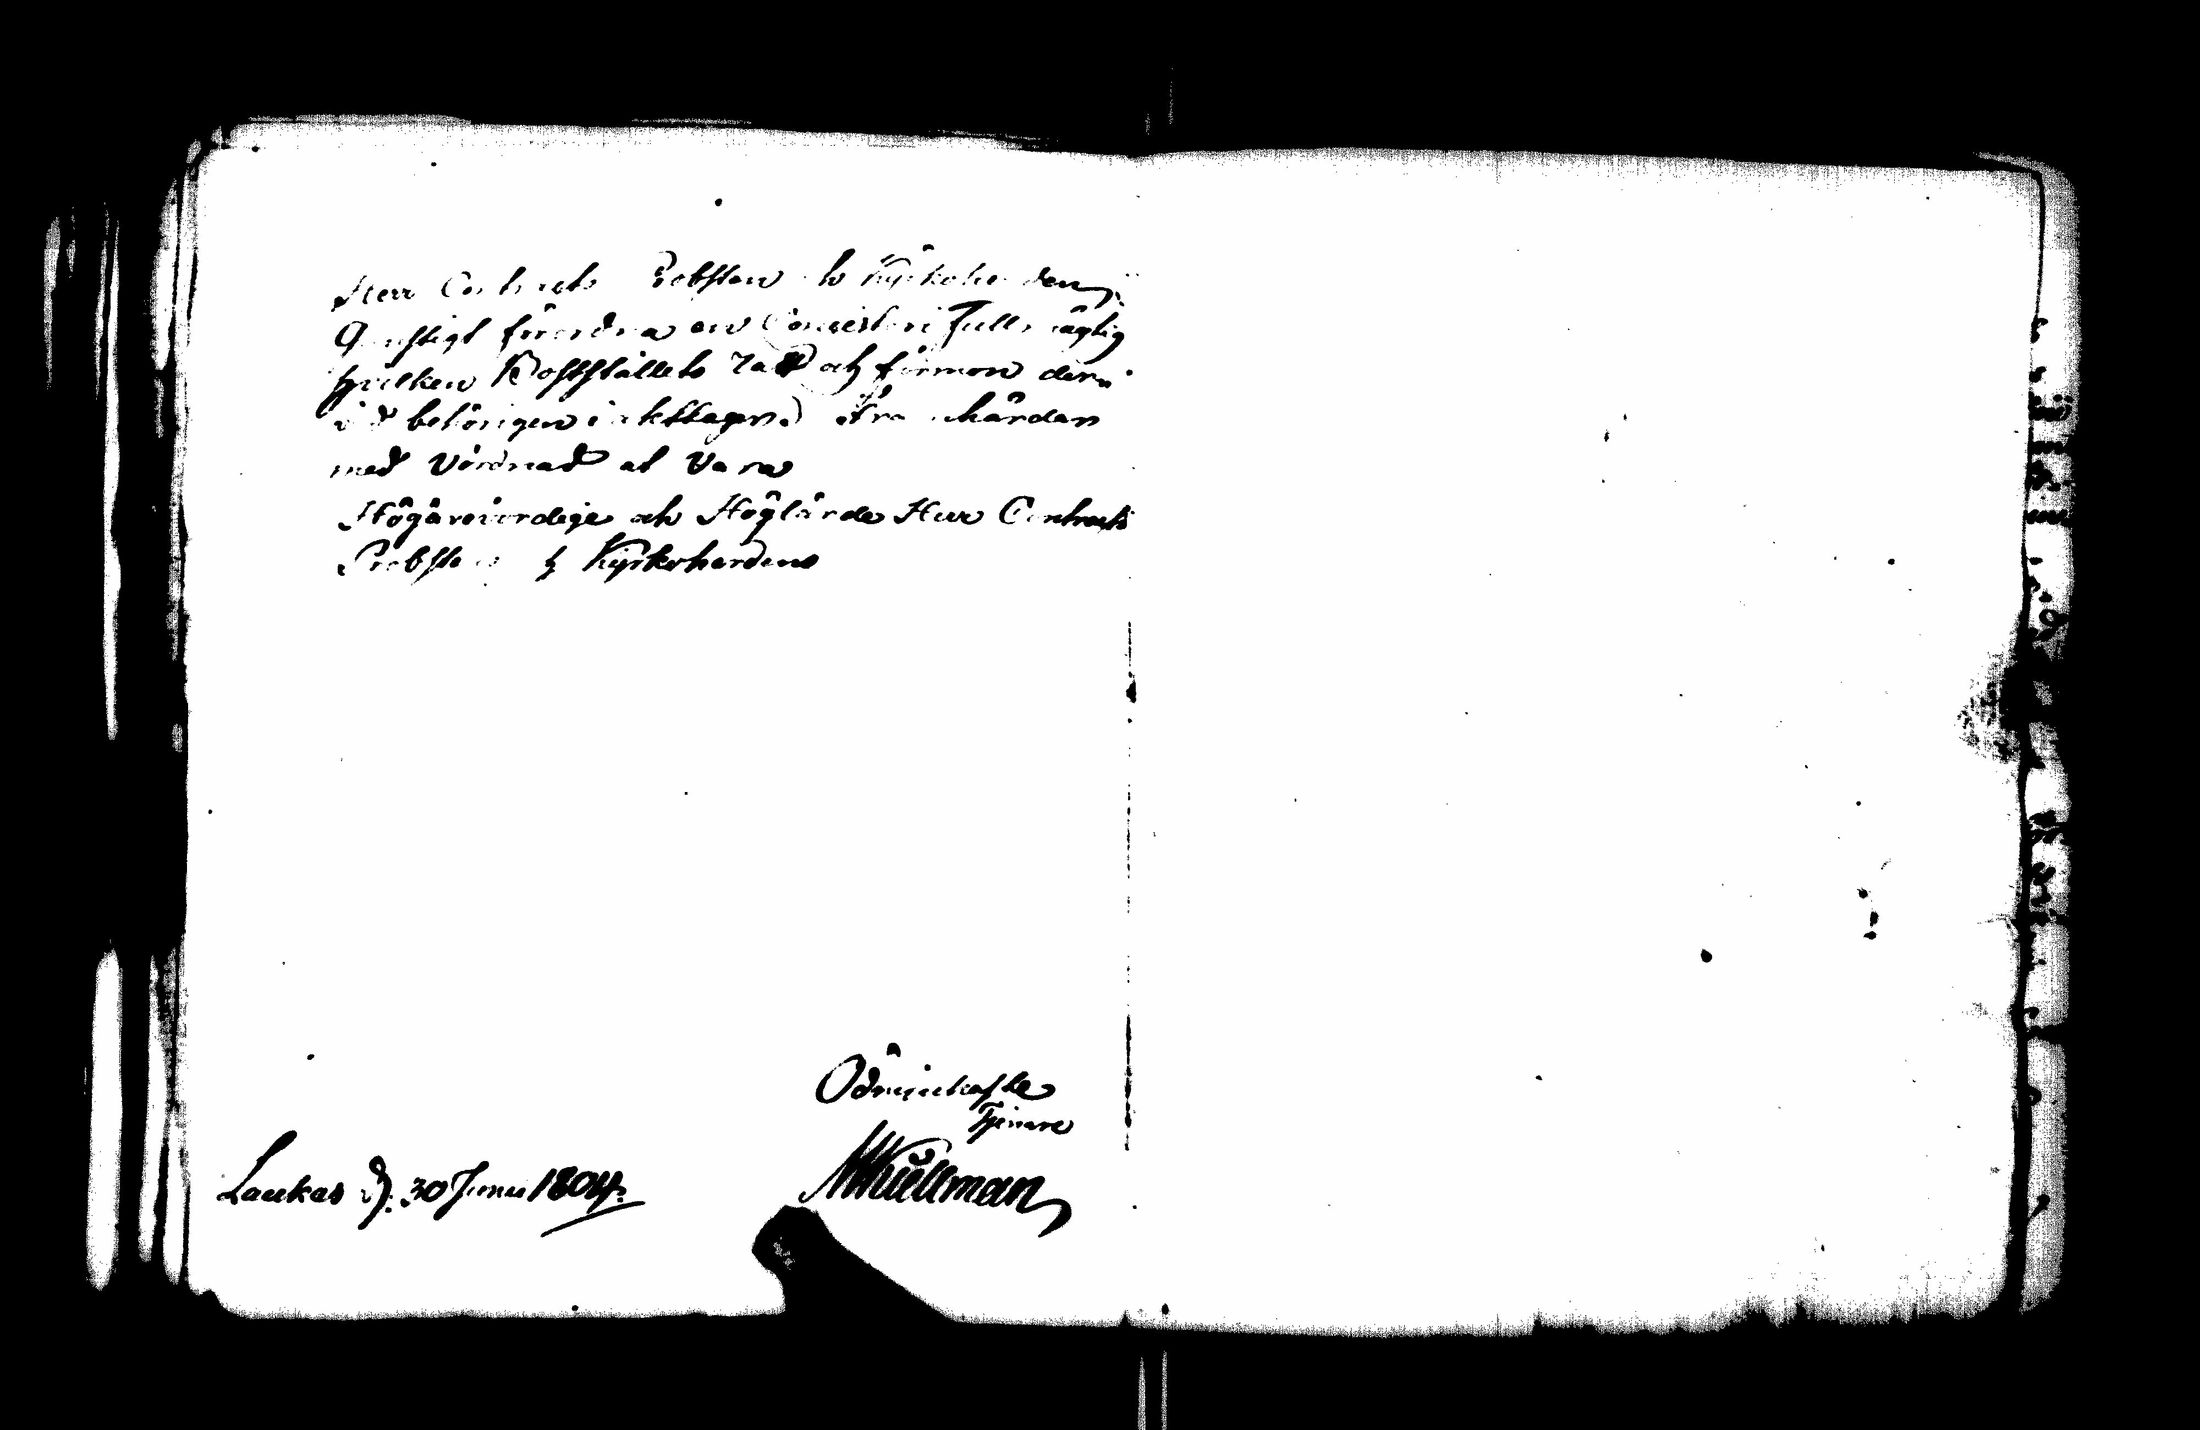 Herr Contracts Probsten och Kyrkoherden
Gunstigt förordna en Consistorii Fullmägtig
hvilken Boställets rätt och förmon der
vid behörigen iakttager. Framhärdar
med Vördnad at vara
Högärevördige och Höglärde Herr Contracts
Probstens och Kyrkoherdens
Ödmiukaste
Tjenare
Kiellman
Laukas d. 30 Junii 1804.